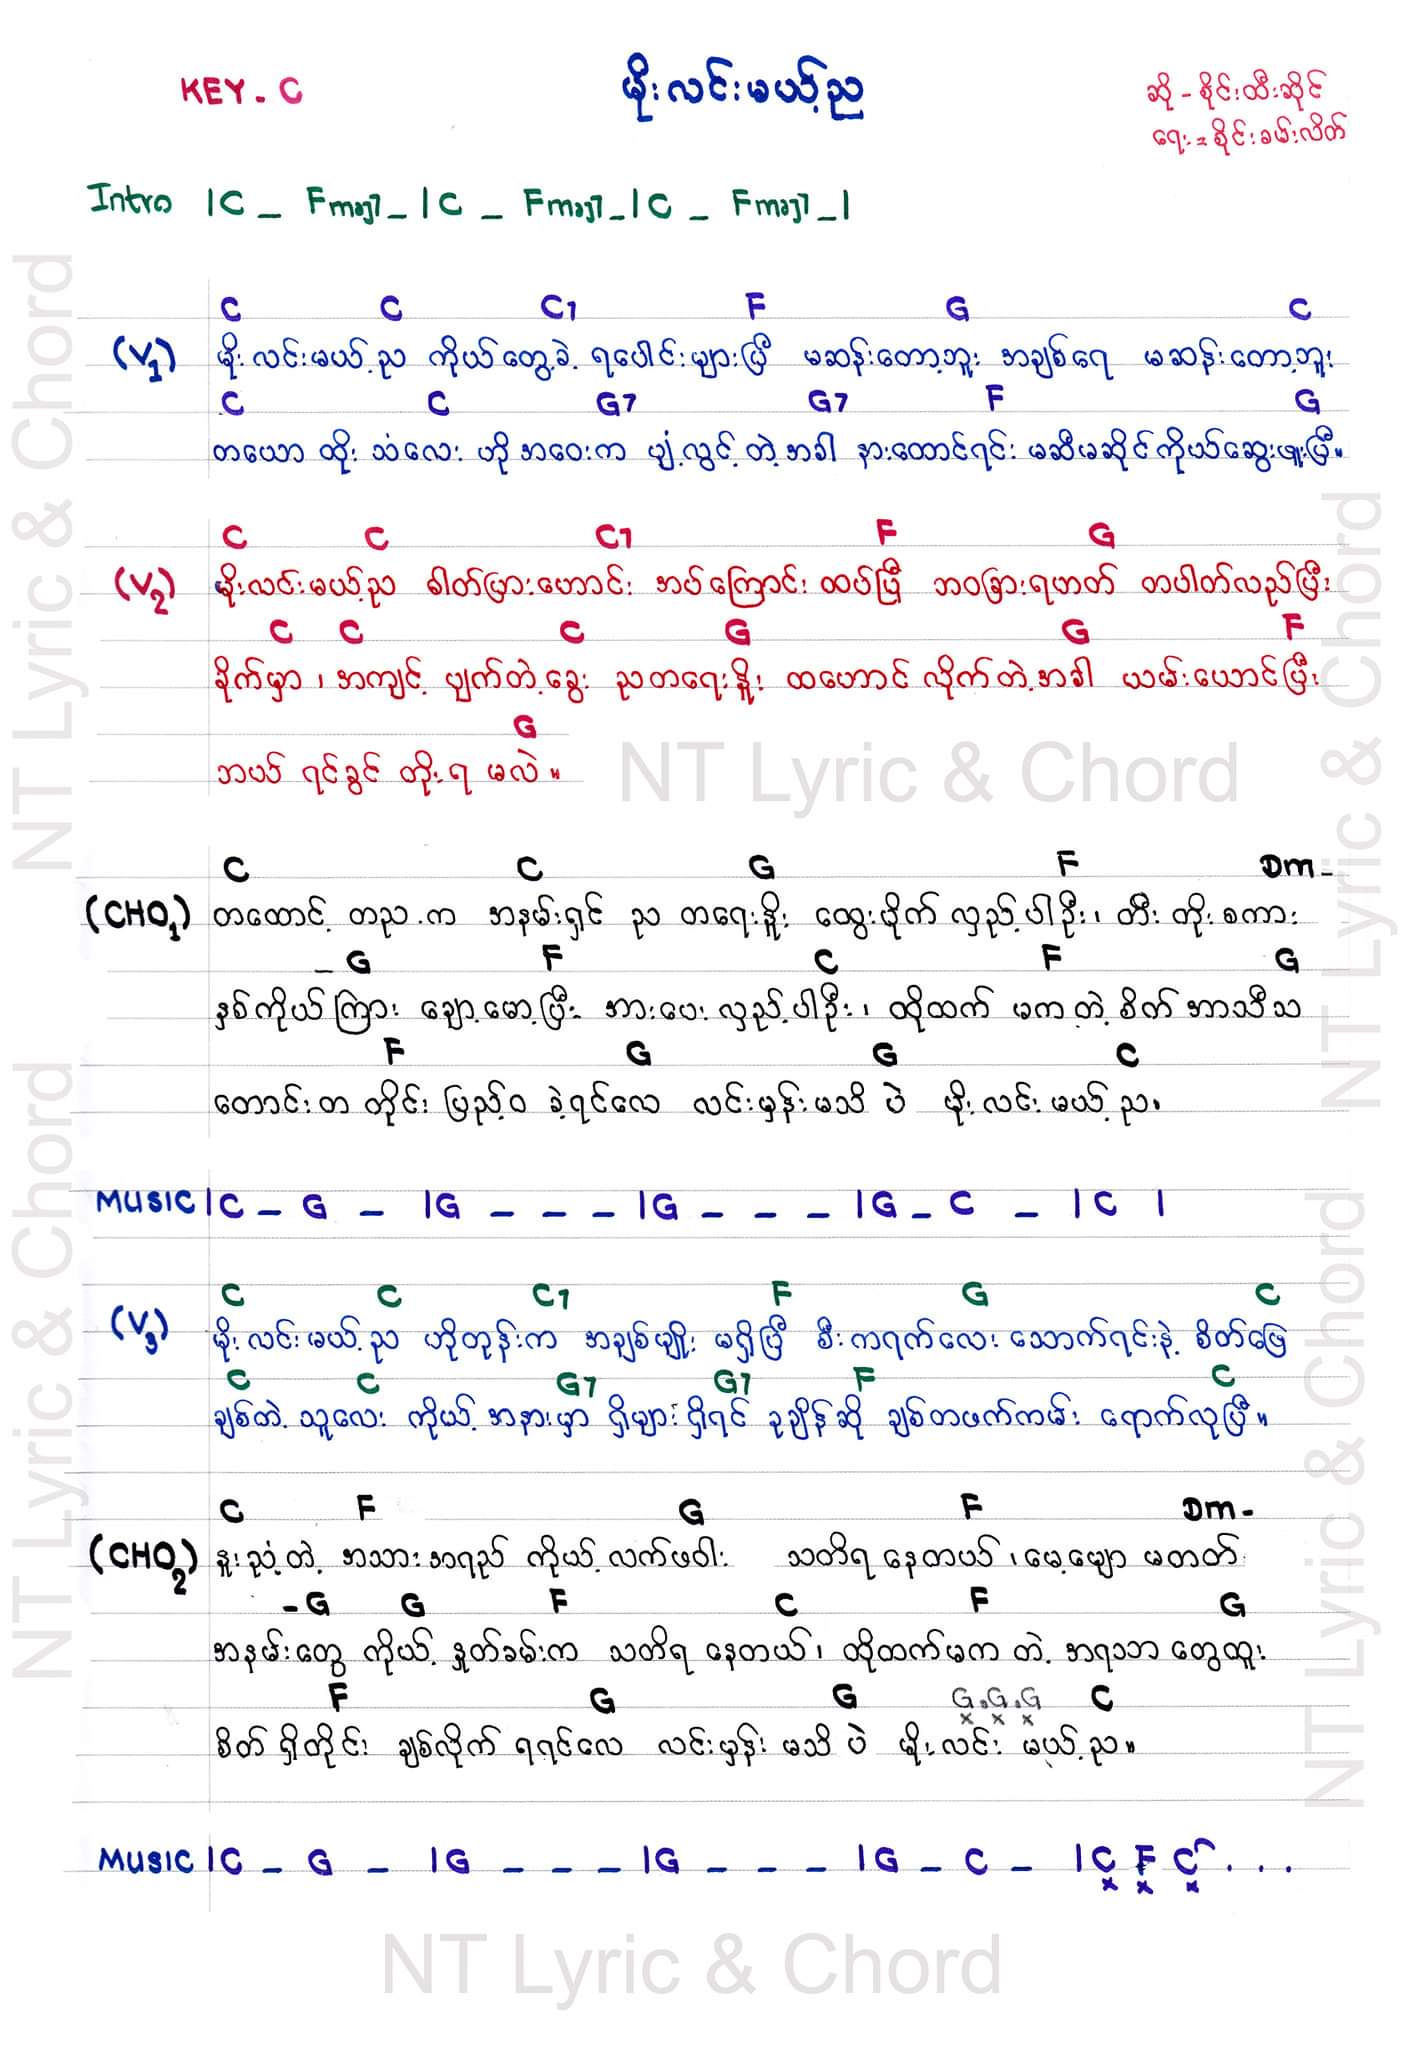 KEY - C
မိုးလင်းမယ့်ည
ဆို - စိုင်းထီးဆိုင်
ရေး = စိုင်းခမ်းလိတ်
Intro |C _ Fmaj7 _ |C _ Fmaj7 _ |C _ Fmaj7 _ |
C C C7 F G C
(V1) မိုးလင်းမယ့်ည ကိုယ်တွေ့ခဲ့ ရပေါင်းများပြီ မဆန်းတော့ဘူး အချစ်ရေ မဆန်းတော့ဘူး
C C G7 G7 F G
တယော ထိုး သံလေး ဟို အဝေးက ပျံ့လွင့် တဲ့အခါ နားထောင်ရင်း မဆီမဆိုင်ကိုယ်ဆွေးဖူးပြီ။
C C C7 F G
(V2) မိုးလင်းမယ့်ည ဓါတ်ပြားဟောင်း အပ်ကြောင်း ထပ်ပြီ ဘဝခြားရဟတ် တပါတ်လည်ပြီး
C C C G G F
ခိုက်မှာ ၊ အကျင့် ပျက်တဲ့ခွေး ညတရေးနိုး ထဟောင် လိုက်တဲ့အခါ ယမ်းယောင်ပြီး
G
ဘယ် ရင်ခွင် တိုးရ မလဲ ။
C C G F Dm -
(CHO1) တထောင့် တည က အနမ်းရှင် ည တရေးနိုး ထွေးပိုက် လှည့်ပါဦး ၊ တီး တိုး စကား
- G F C F G
နှစ်ကိုယ်ကြား ချော့မော့ပြီး အားပေး လှည့်ပါဦး ၊ ထို့ထက် မက တဲ့ စိတ် အာသီသ
F G G C
တောင်း တ တိုင်း ပြည့်ဝ ခဲ့ရင်လေ လင်းမှန်းမသိ ပဲ မိုးလင်း မယ့် ည။
MUSIC |C _ G _ |G _ _ _ |G _ _ _ |G _ C _ |C |
C C C7 F G C
(V3) မိုးလင်းမယ့်ည ဟိုတုန်းက အချစ်မျိုး မရှိပြီ စီးကရက်လေး သောက်ရင်းနဲ့ စိတ်ဖြေ
C C G7 G7 F C
ချစ်တဲ့ သူလေး ကိုယ့် အနားမှာ ရှိများ ရှိရင် ခုချိန်ဆို ချစ်တဖက်ကမ်း ရောက်လုပြီ။
C F G F Dm -
(CHO2) နူးညံ့တဲ့ အသားအရည် ကိုယ့် လက်ဖဝါး သတိရ နေတယ် ၊ မေ့မျော မတတ်
- G G F C F G
အနမ်းတွေ ကိုယ့် နှုတ်ခမ်းက သတိရ နေတယ် ၊ ထို့ထက်မက တဲ့ အရသာ တွေထူး
F G G G . G . G C
x x x
စိတ် ရှိတိုင်း ချစ်လိုက် ရရင်လေ လင်းမှန်း မသိ ပဲ မိုးလင်း မယ့် ည။
MUSIC |C _ G _ |G _ _ _ |G _ _ _ |G _ C _ |C F C . . .
x x x
NT Lyric & Chord
NT Lyric & Chord
NT Lyric & Chord
NT Lyric & Chord
NT Lyric & Chord
NT Lyric & Chord